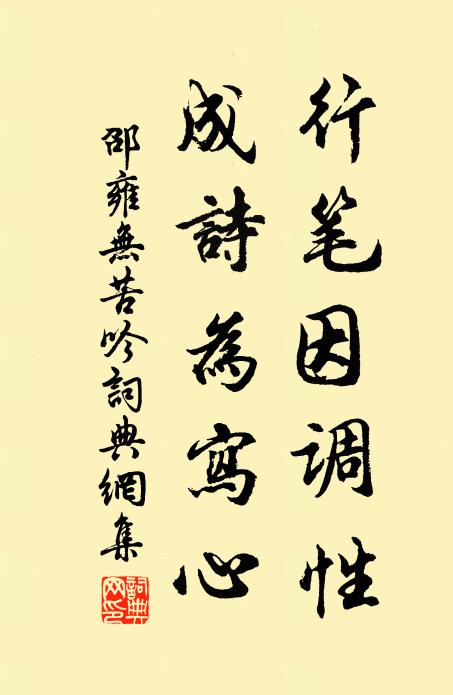 行笔因调性
成詩為寫心
邵雍無苦吟詞典網集
詞典網印